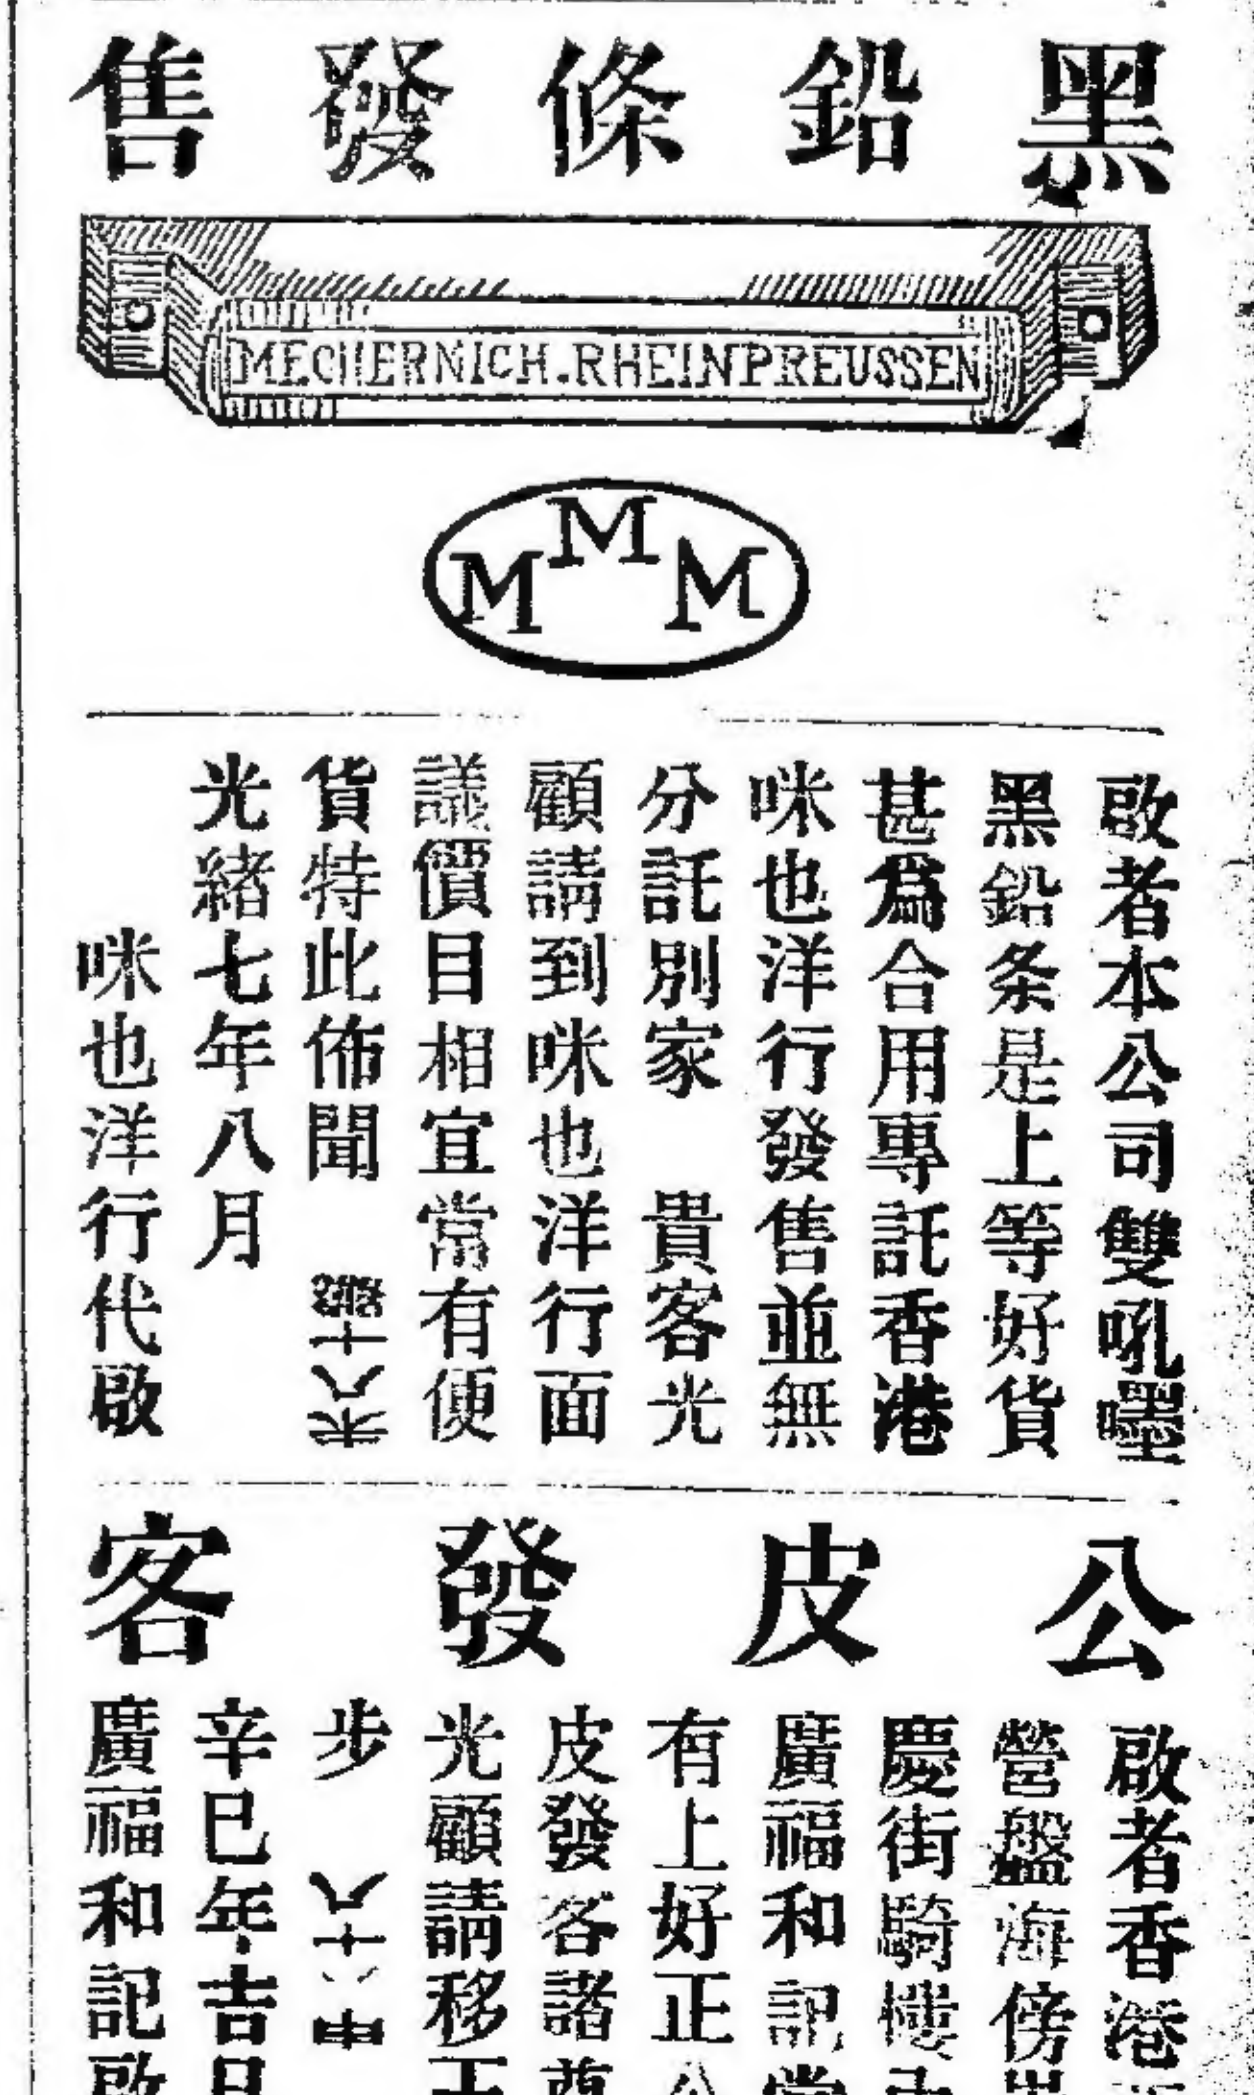 黑鉛條發售
MECHERNICH.RHEINPREUSSEN
M M M
啟者本公司雙吼嚜
黑鉛条是上等好貨
甚爲合用專託香港
咪也洋行發售並無
分託別家 貴客光
顧請到咪也洋行面
議價目相宜常有便
貨特此佈聞
光緒七年八月
咪也洋行代啟
公皮發客
啟者香港
營盤海傍
慶街騎樓
廣福和記常
有上好正公
皮發客諸尊
光顧請移玉
步
辛巳年吉日
廣福和記啟